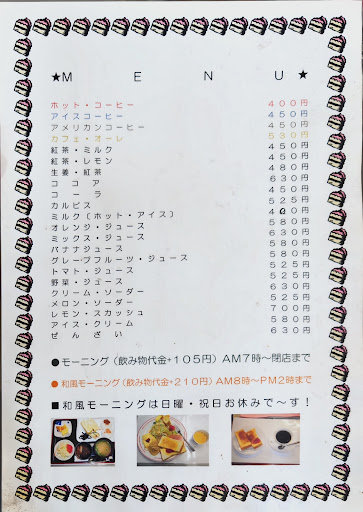 ★MENU★
ホット・コーヒー 400円
アイスコーヒー 450円
アメリカンコーヒー 450円
カフェ・オーレ 530円
紅茶・ミルク 450円
紅茶・レモン 450円
生姜・紅茶 480円
ココア 630円
コーラ 450円
カルピス 525円
ミルク〔ホット・アイス〕 400円
オレンジ・ジュース 580円
ミックス・ジュース 630円
バナナジュース 580円
グレープフルーツ・ジュース 580円
トマト・ジュース 525円
野菜・ジュース 525円
クリーム・ソーダー 580円
メロン・ソーダー 525円
レモン・スカッシュ 700円
アイス・クリーム 580円
ぜんざい 630円
●モーニング（飲み物代金+105円）AM7時～閉店まで
●和風モーニング（飲み物代金+210円）AM8時～PM2時まで
■和風モーニングは日曜・祝日お休みで～す！